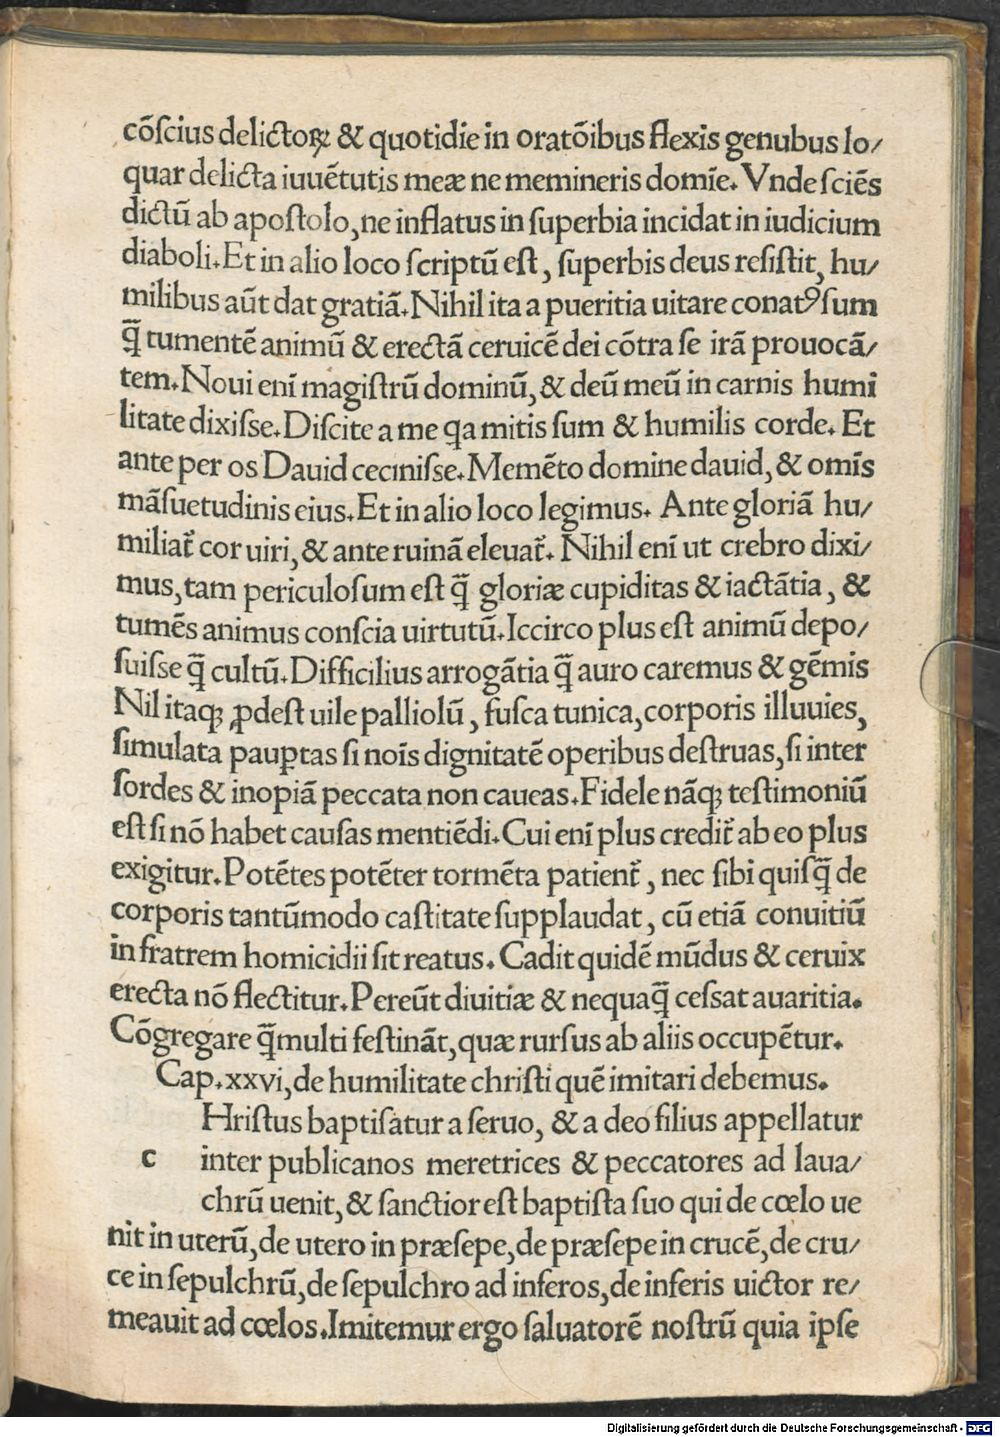 cōſcius delictoꝝ & quotidie in oratōibus flexis genubus lo/
quar delicta iuuētutis meæ ne memineris domīe. Vnde ſciēs
dictū ab apoſtolo, ne inflatus in ſuperbia incidat in iudicium
diaboli. Et in alio loco ſcriptū eſt, ſuperbis deus reſiſtit, hu/
milibus aūt dat gratiā. Nihil ita a pueritia uitare conatꝰ ſum
q̄ tumentē animū & erectā ceruicē dei cōtra ſe irā prouocā/
tem. Noui enī magiſtrū dominū, & deū meū in carnis humi
litate dixiſſe. Diſcite a me qa mitis ſum & humilis corde. Et
ante per os Dauid ceciniſſe. Memēto domine dauid, & omīs
māſuetudinis eius. Et in alio loco legimus. Ante gloriā hu/
miliat᷑ cor uiri, & ante ruinā eleuat᷑. Nihil enī ut crebro dixi/
mus, tam periculoſum eſt q̄ gloriæ cupiditas & iactātia, &
tumēs animus conſcia uirtutū. Iccirco plus eſt animū depo/
ſuiſſe q̄ cultū. Difficilius arrogātia q̄ auro caremus & gēmis
Nil itaqꝫ ꝓdeſt uile palliolū, fuſca tunica, corporis illuuies,
ſimulata paup̱tas ſi noīs dignitatē operibus deſtruas, ſi inter
ſordes & inopiā peccata non caueas. Fidele nāqꝫ teſtimoniū
eſt ſi nō habet cauſas mentiēdi. Cui enī plus credit᷑ ab eo plus
exigitur. Potētes potēter tormēta patient᷑, nec ſibi quiſq̄ de
corporis tantūmodo caſtitate ſupplaudat, cū etiā conuitiū
in fratrem homicidii ſit reatus. Cadit quidē mūdus & ceruix
erecta nō flectitur. Pereūt diuitiæ & nequaq̄ ceſſat auaritia.
Cōgregare q̄ multi feſtināt, quæ rurſus ab aliis occupētur.
Cap. xxvi, de humilitate chriſti quē imitari debemus.
Hriſtus baptiſatur a ſeruo, & a deo filius appellatur
c inter publicanos meretrices & peccatores ad laua/
chrū uenit, & ſanctior eſt baptiſta ſuo qui de cœlo ue
nit in uterū, de utero in præſepe, de præſepe in crucē, de cru/
ce in ſepulchrū, de ſepulchro ad inferos, de inferis uictor re/
meauit ad cœlos. Imitemur ergo ſaluatorē noſtrū quia ipſe
Digitalisierung gefördert durch die Deutsche Forschungsgemeinschaft - DFG